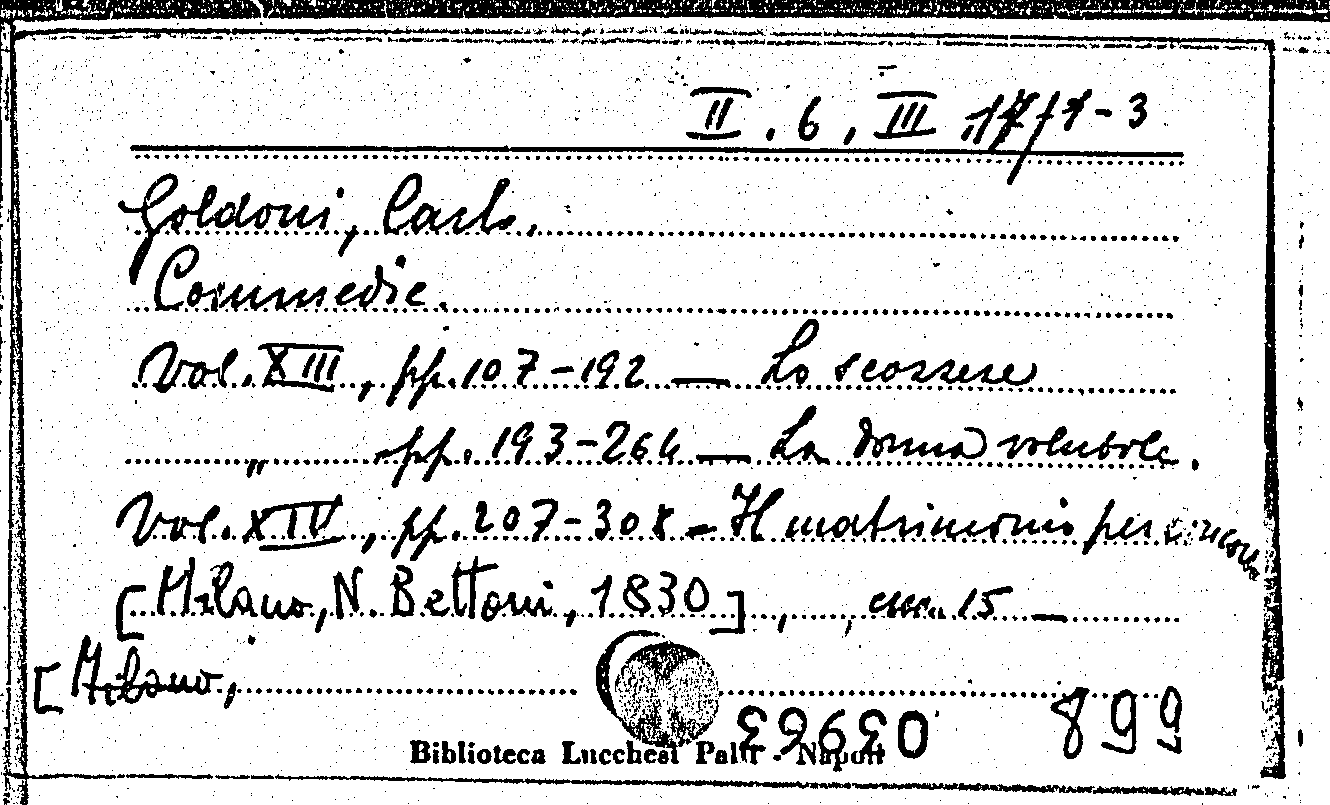 II . 6 , III .17/1-3
Goldoni, Carlo.
Commedie.
Vol. XIII, pp. 107-192 — La scozzese
„ pp. 193-264 — La donna volubile.
Vol. XIV, pp. 207-308 - Il matrimonio per concorso
[Milano, N. Bettoni, 1830] , , cm. 15 —
[Milano,
899
Biblioteca Lucchesi Palli - Napoli